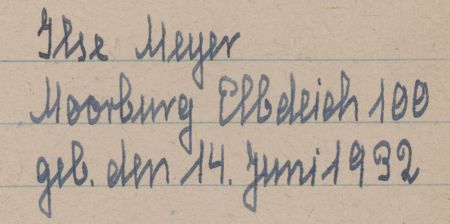 Ilse Meyer
Moorburg Elbdeich 100
geb. den 14. Juni 1932